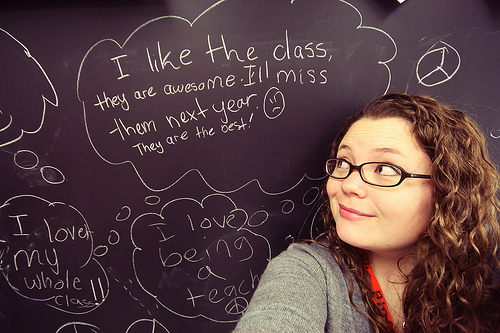 I like the class,
they are awesome. I'll miss
them next year. ☹
They are the best!
I love
my
whole
class!!
I love
being
a
teach